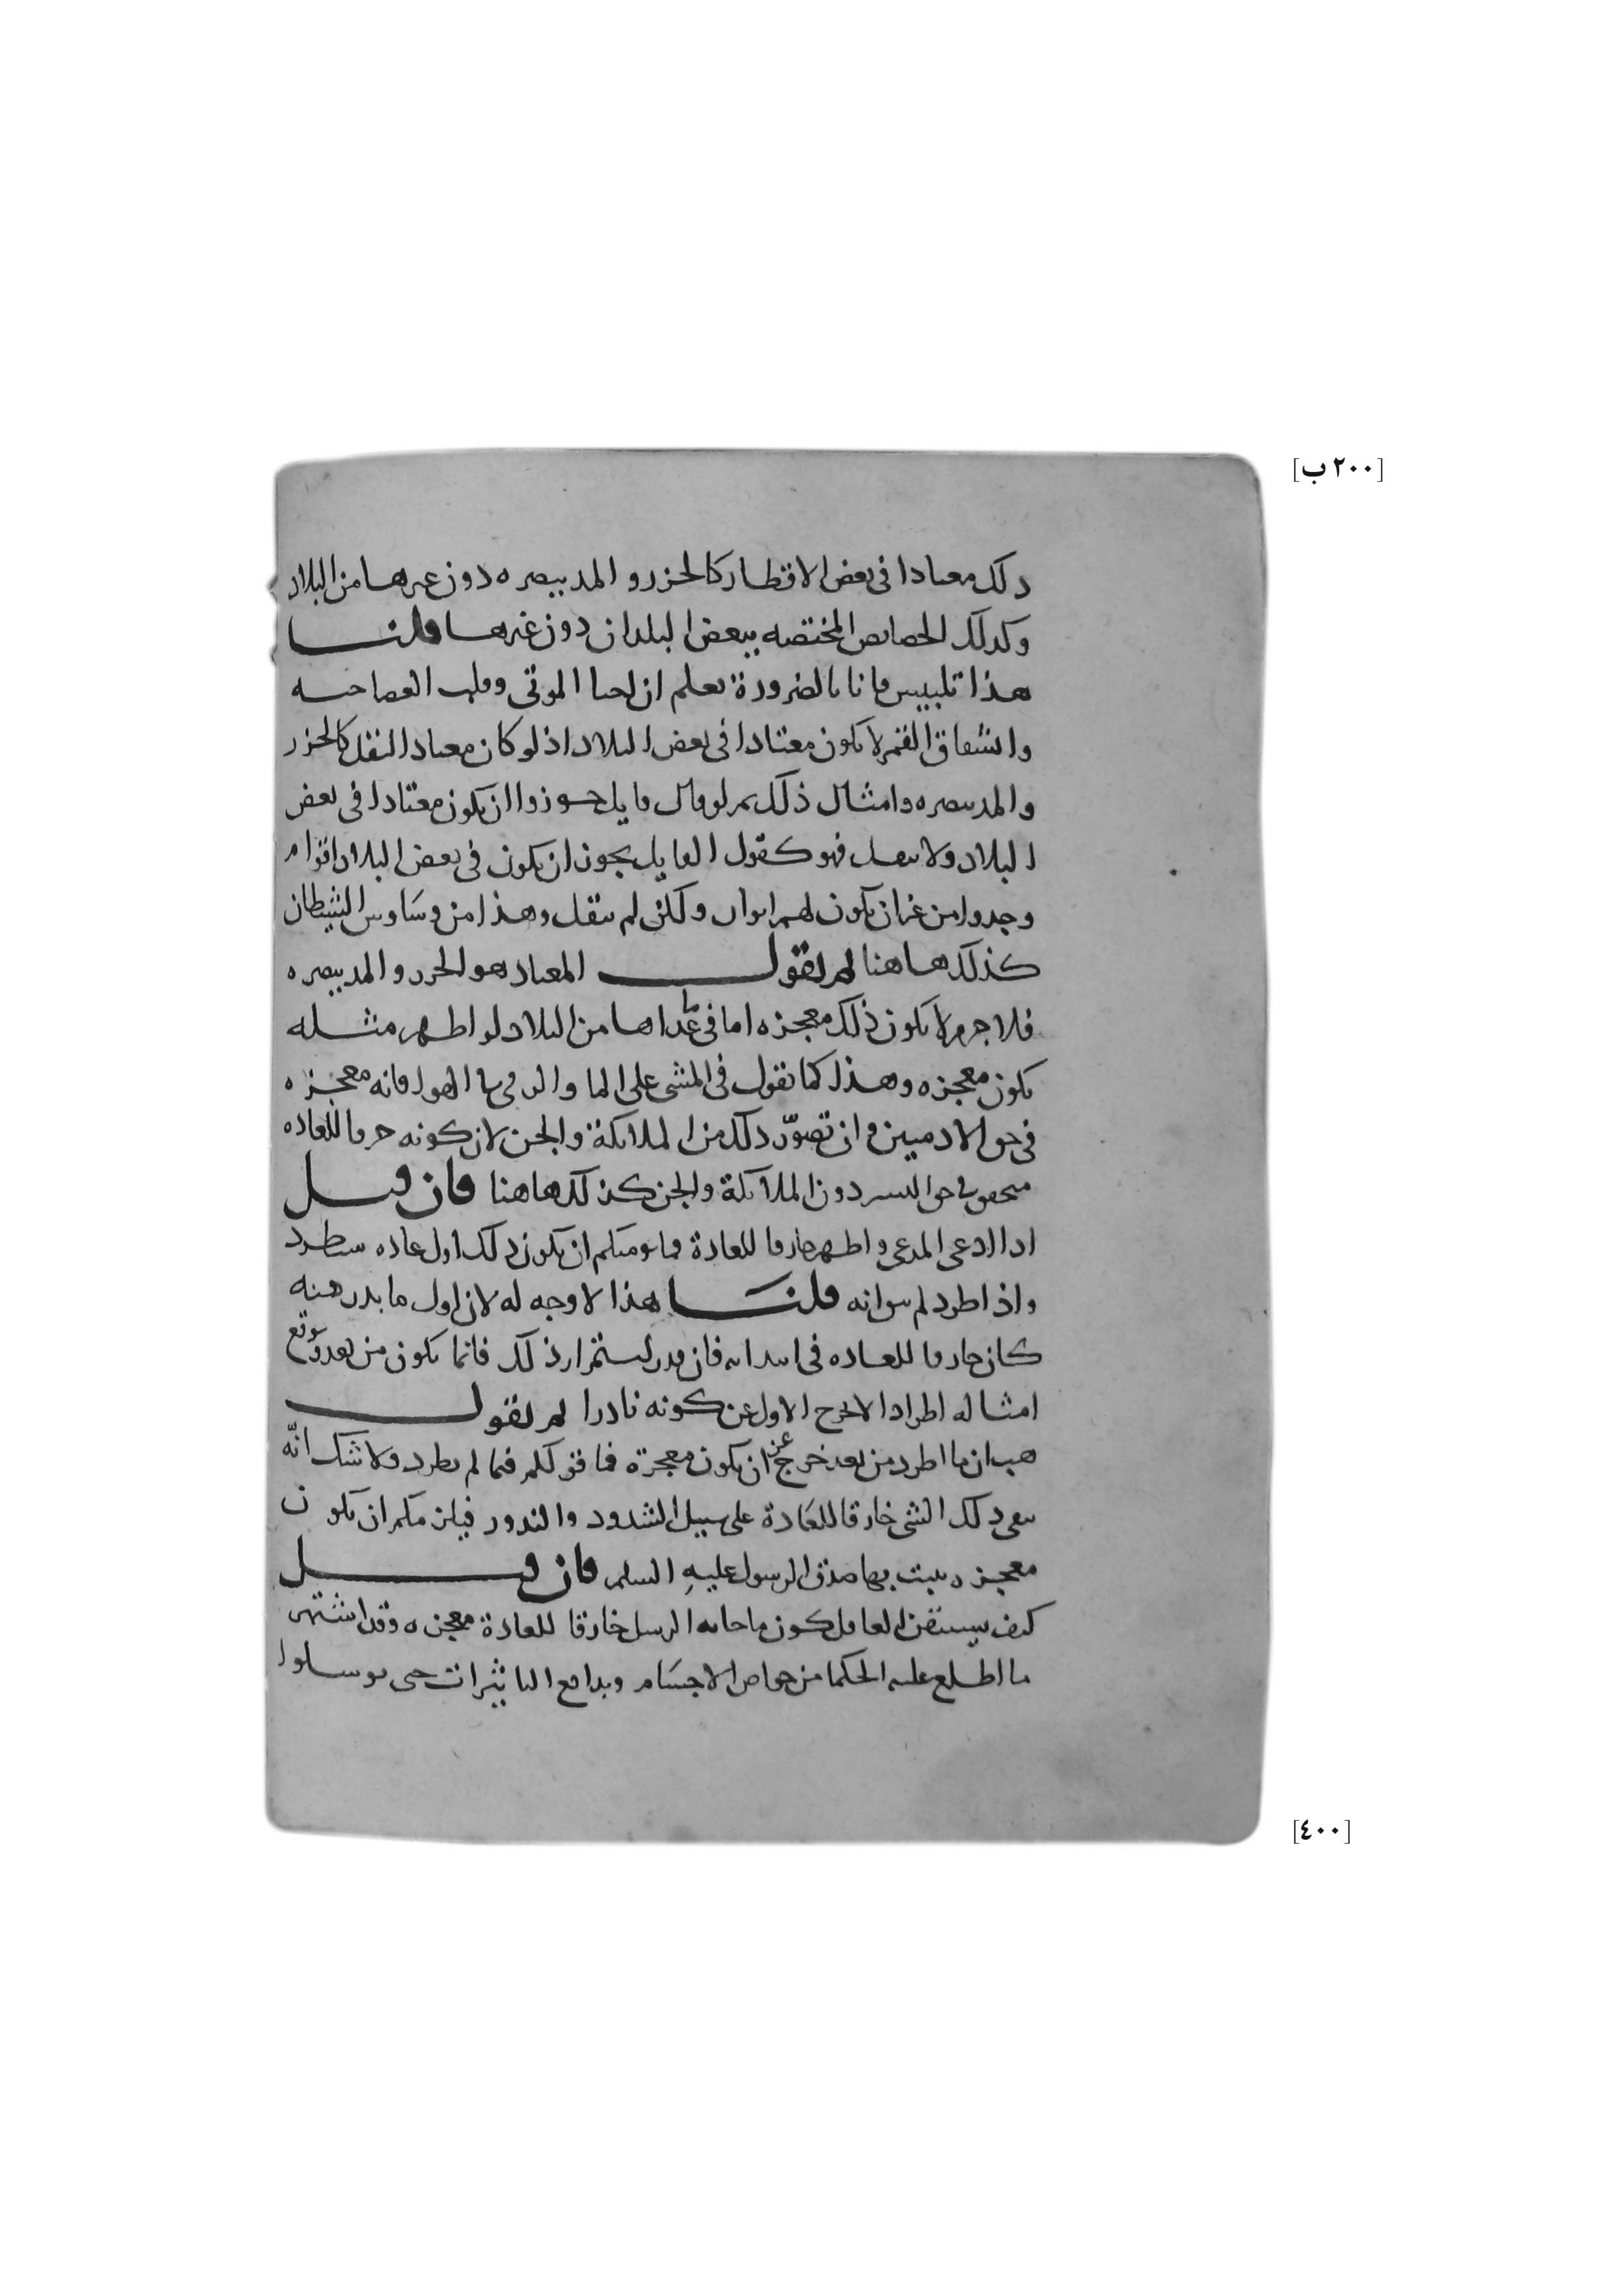 [٢٠٠ ب]
ذلك معتادا في بعض الاقطار كالجزر والمد ببصره دون غيرها من البلاد
وكذلك الخصايص المختصه ببعض البلدان دون غيرها قلنا
هذا تلبيس فانا بالضرورة نعلم ان احيا الموتى وقلب العصا حيه
وانشقاق القمر لا يكون معتادا في بعض البلاد اذ لو كان معتادا لنقل كالجزر
والمد ببصره وامثال ذلك ثم لو قال قايل جوزوا ان يكون معتادا في بعض
البلاد ولا ينقل فهو كقول القايل يجوز ان يكون في بعض البلاد اقوام
وجدوا من غير ان يكون لهم ابوان ولكن لم ينقل وهذا من وساوس الشيطان
كذلك هاهنا ثم نقول المعتاد هو الجزر والمد ببصره
فلا جرم لا يكون ذلك معجزه اما في ما عداها من البلاد لو اظهر مثله
يكون معجزه وهذا كما نقول في المشي على الما والترقي الى الهوا فانه معجزه
في حق الادميين وان تصوّر ذلك من الملائكة والجن لان كونه خرقا للعاده
متحقق في حق البشر دون الملائكة والجن كذلك هاهنا فان قيل
اذا ادعى المدعي واظهر خارقا للعادة فما يومنكم ان يكون ذلك اول عاده ستطرد
واذا اطرد لم يبق ايه قلنا هذا لا وجه له لان اول ما بدر منه
كان خارقا للعاده في ابتدايه فان قدر استمرار ذلك فانما يكون من بعد وقوع
امثاله اطرادا لا يخرج الاول عن كونه نادرا ثم نقول
هب ان ما اطرد من بعد خرج عن ان يكون معجزة فما قولكم فيما لم يطرد ولا شك انّه
يبقى ذلك الشي خارقا للعادة على سبيل الشذوذ والندور فيلزمكم ان يكون
معجزه يثبت بها صدق الرسول عليه السلم فان قيل
كيف يستيقن العاقل كون ما جا به الرسل خارقا للعادة معجزه وقد اشتهر
ما اطلع عليه الحكما من خواص الاجسام وبدايع التاثيرات حتى توسلوا
[٤٠٠]